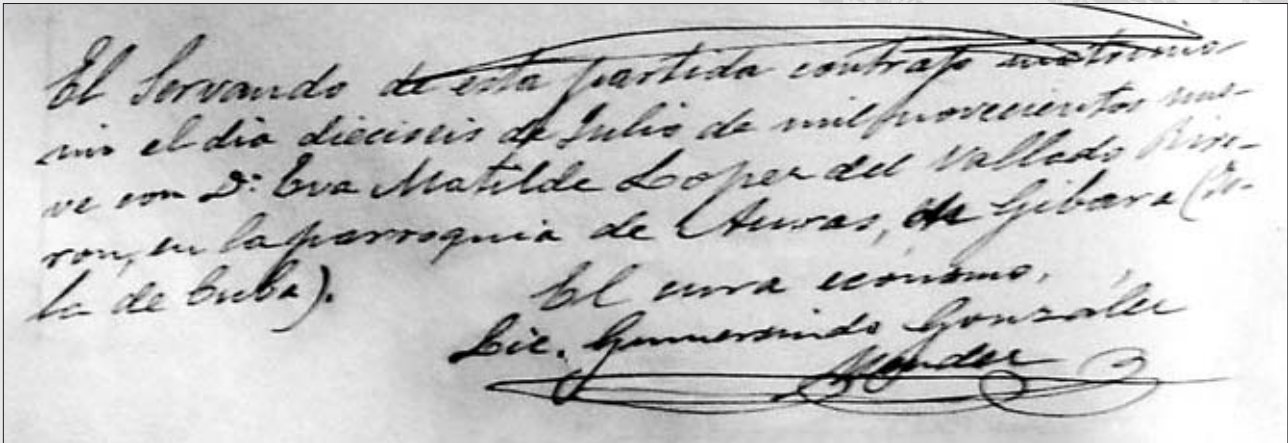 El Servando de esta partida contrajo matrimo-
nio el dia dieciseis de Julio de mil novecientos nue-
ve con Dª Eva Matilde Lopez del Vallado
ron, en la parroquia de Auras, de Gibara (Is-
la de Cuba).
El cura ecónomo,
Lic. Gumersindo González
Mendez